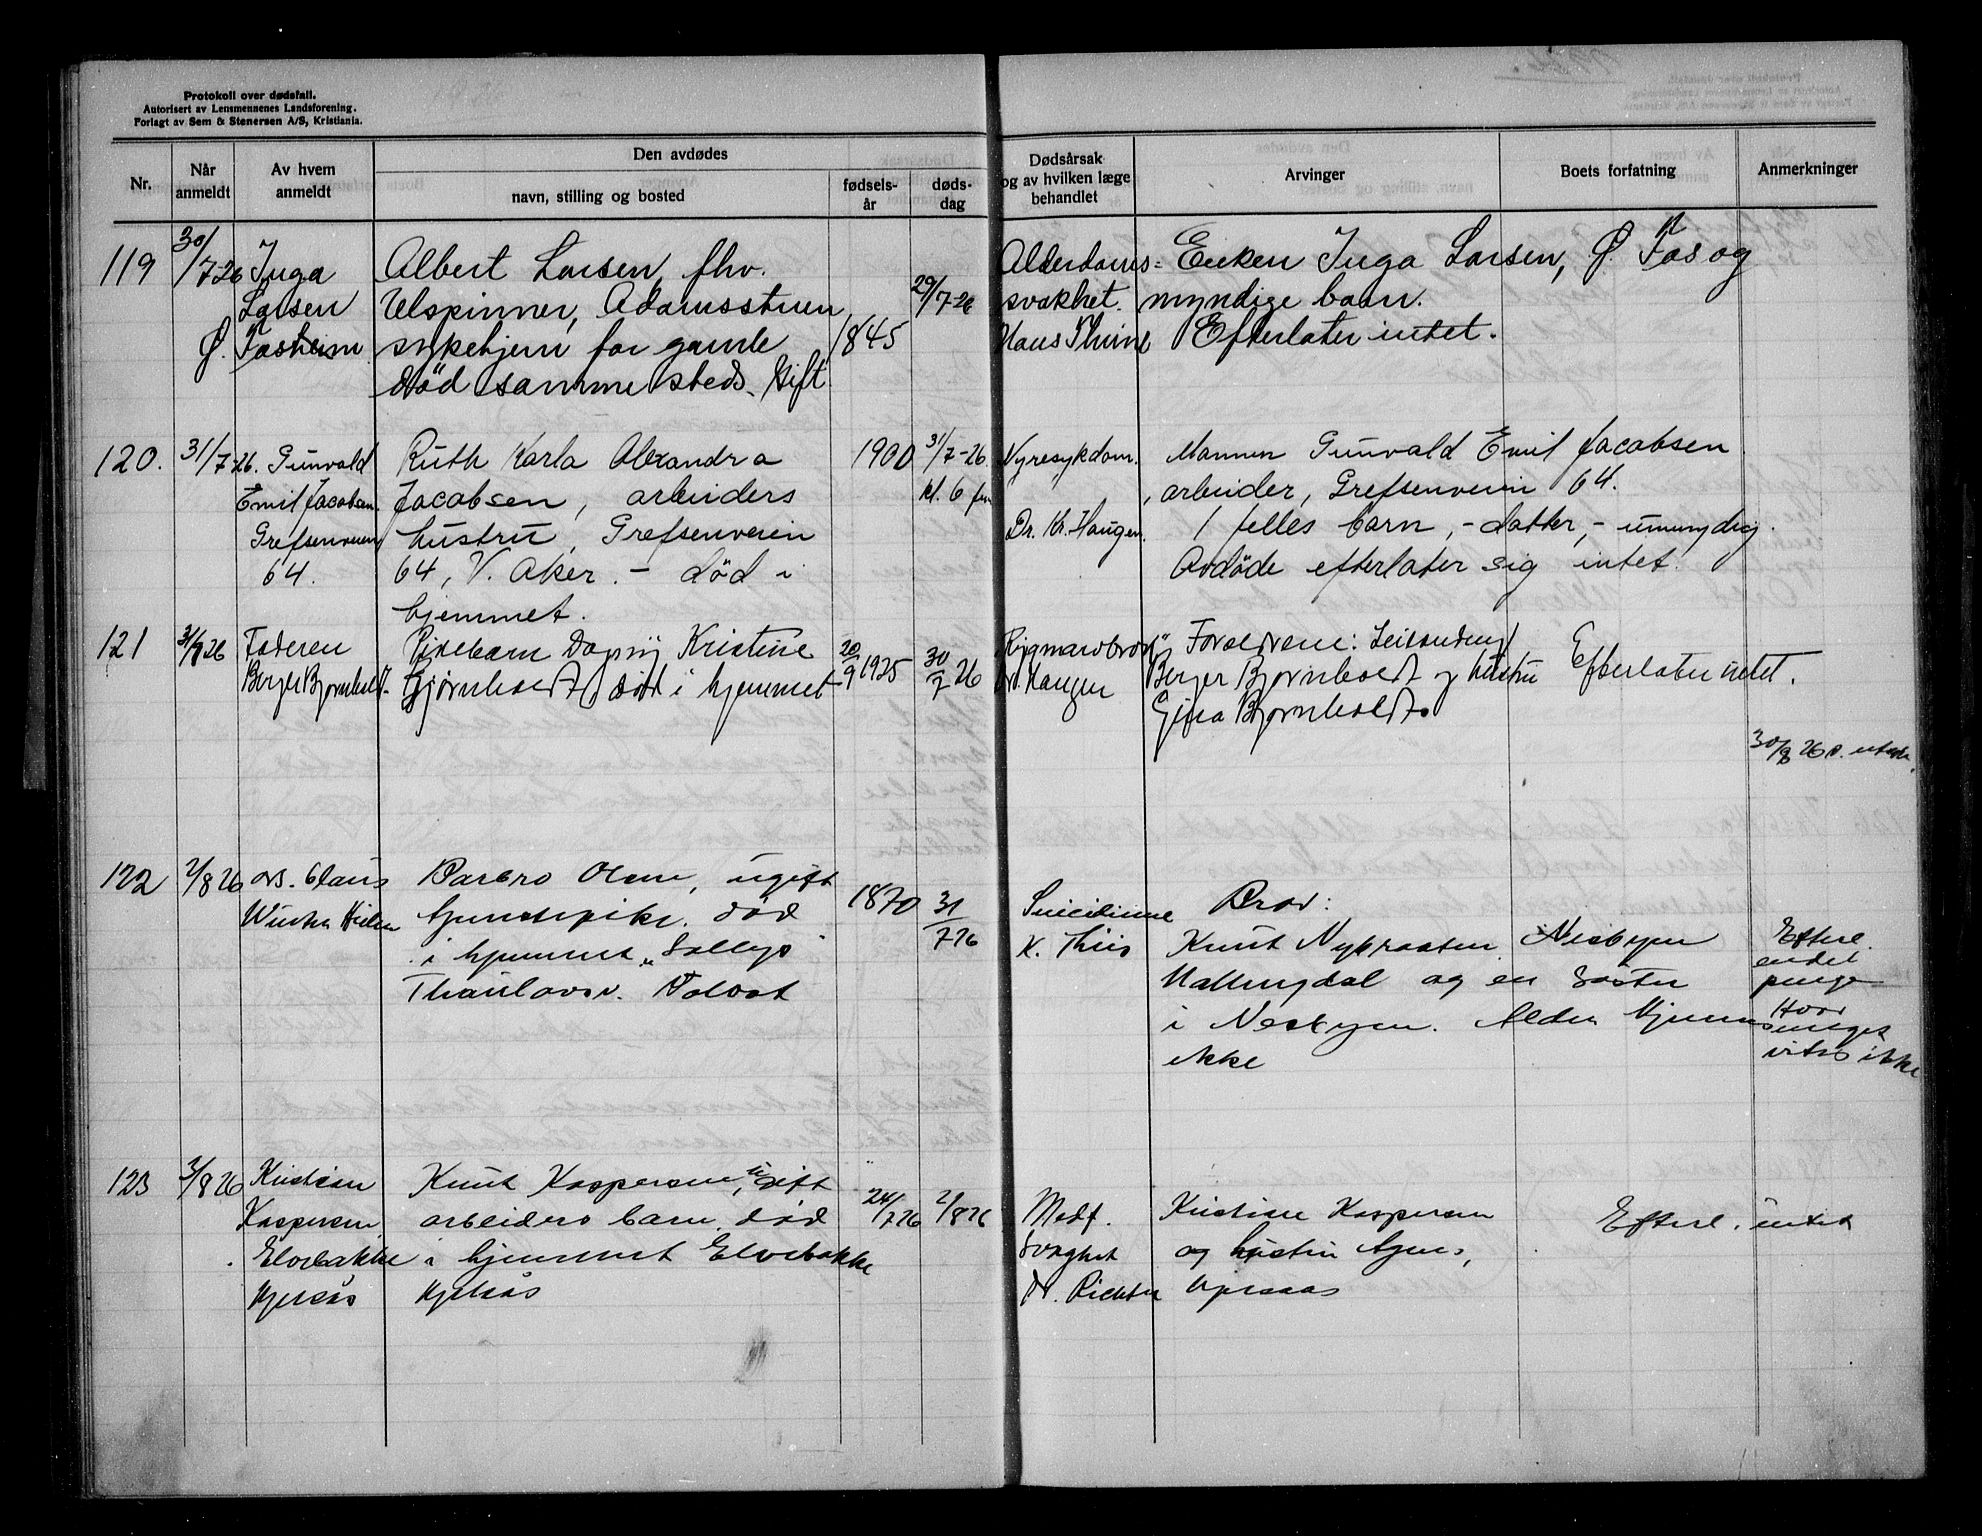 Protokoll over dødsfall.
Autorisert av Lensmennenes Landsforening.
Forlagt av Sem & Stenersen A/S, Kristiania.
Nr.
Når anmeldt
Av hvem anmeldt
Den avdødes
navn, stilling og bosted
fødsels-år
døds-dag
Dødsårsak og av hvilken læge behandlet
Arvinger
Boets forfatning
Anmerkninger
119
30/7-26
Inga
Larsen
Ø. Fosheim
Albert Larsen, fhv.
Ulspinner, Adamsstuen
sykehjem for gamle
død samme steds. Gift
1845
29/7-26
Alderdoms=
svakhet.
Hans Thine
Enken Inga Larsen, Ø. Fos og
myndige barn.
Efterlater intet.
120.
31/7 26.
Gunvald
Emil Jacobsen.
Grefsenveien
64.
Ruth Karla Alexandra
Jacobsen, arbeiders
hustru, Grefsenveien
64, V. Aker. - død i
hjemmet.
1900
31/7-26
kl. 6 fm
Nyresykdom.
Dr. Kr. Haugen.
Mannen Gunvald Emil Jacobsen
, arbeider, Grefsenveien 64.
1 felles barn, - datter, - umyndig.
Avdøde efterlater sig intet.
121
31/7 26
Faderen
Berger Bjørnholdt.
Pikebarn Dagny Kristine
Bjørnholdt død i hjemmet
20/9 1925
30/7 26
Rygmarvbrok
Dr. Haugen
Foreldrene:
Berger Bjørnholdt og hustru
Gina Bjørnholdt.
Efterlater intet.
30/8 26
122
2/8 26
ors. Claus
Barbro Olsen, ugift
tjenestepike. død
i hjemmet "Sollys"
Thaulowsv.
1870
31/7 26
Suicidium
K. Thiis
Bror:
Knut Nybraaten Nesbyen
Hallingdal og en søster
i Nesbyen. Alder kjennes
ikke
Efterl.
endel
penge
Hvor
meget
vites ikke
123
3/8 26
Kristian
Kaspersen,
Elvebakke
Kjelsås
Knut Kaspersen, ugift
arbeiders barn. død
i hjemmet Elvebakke
Kjelsås
24/7 26
2/8 26
Medf.
svaghet
Dr. Richter
Kristian Kaspersen
og hustru
Efterl. intet